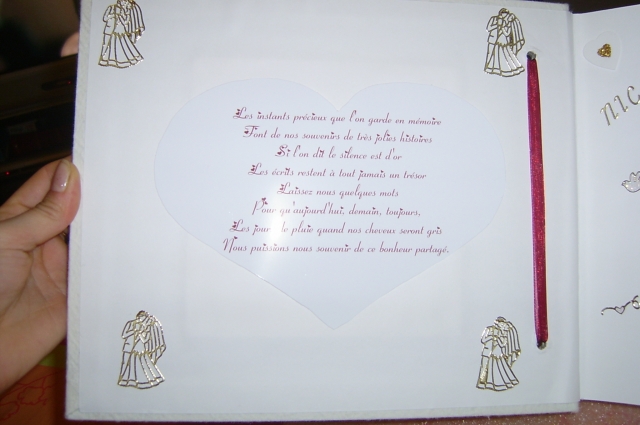 Les instants précieux que l'on garde en mémoire
Font de nos souvenirs de très jolies histoires
Si l'on dit le silence est d'or
Les écrits restent à tout jamais un trésor
Laissez nous quelques mots
Pour qu'aujourd'hui, demain, toujours,
Les jours de pluie quand nos cheveux seront gris
Nous puissions nous souvenir de ce bonheur partagé.
NIC